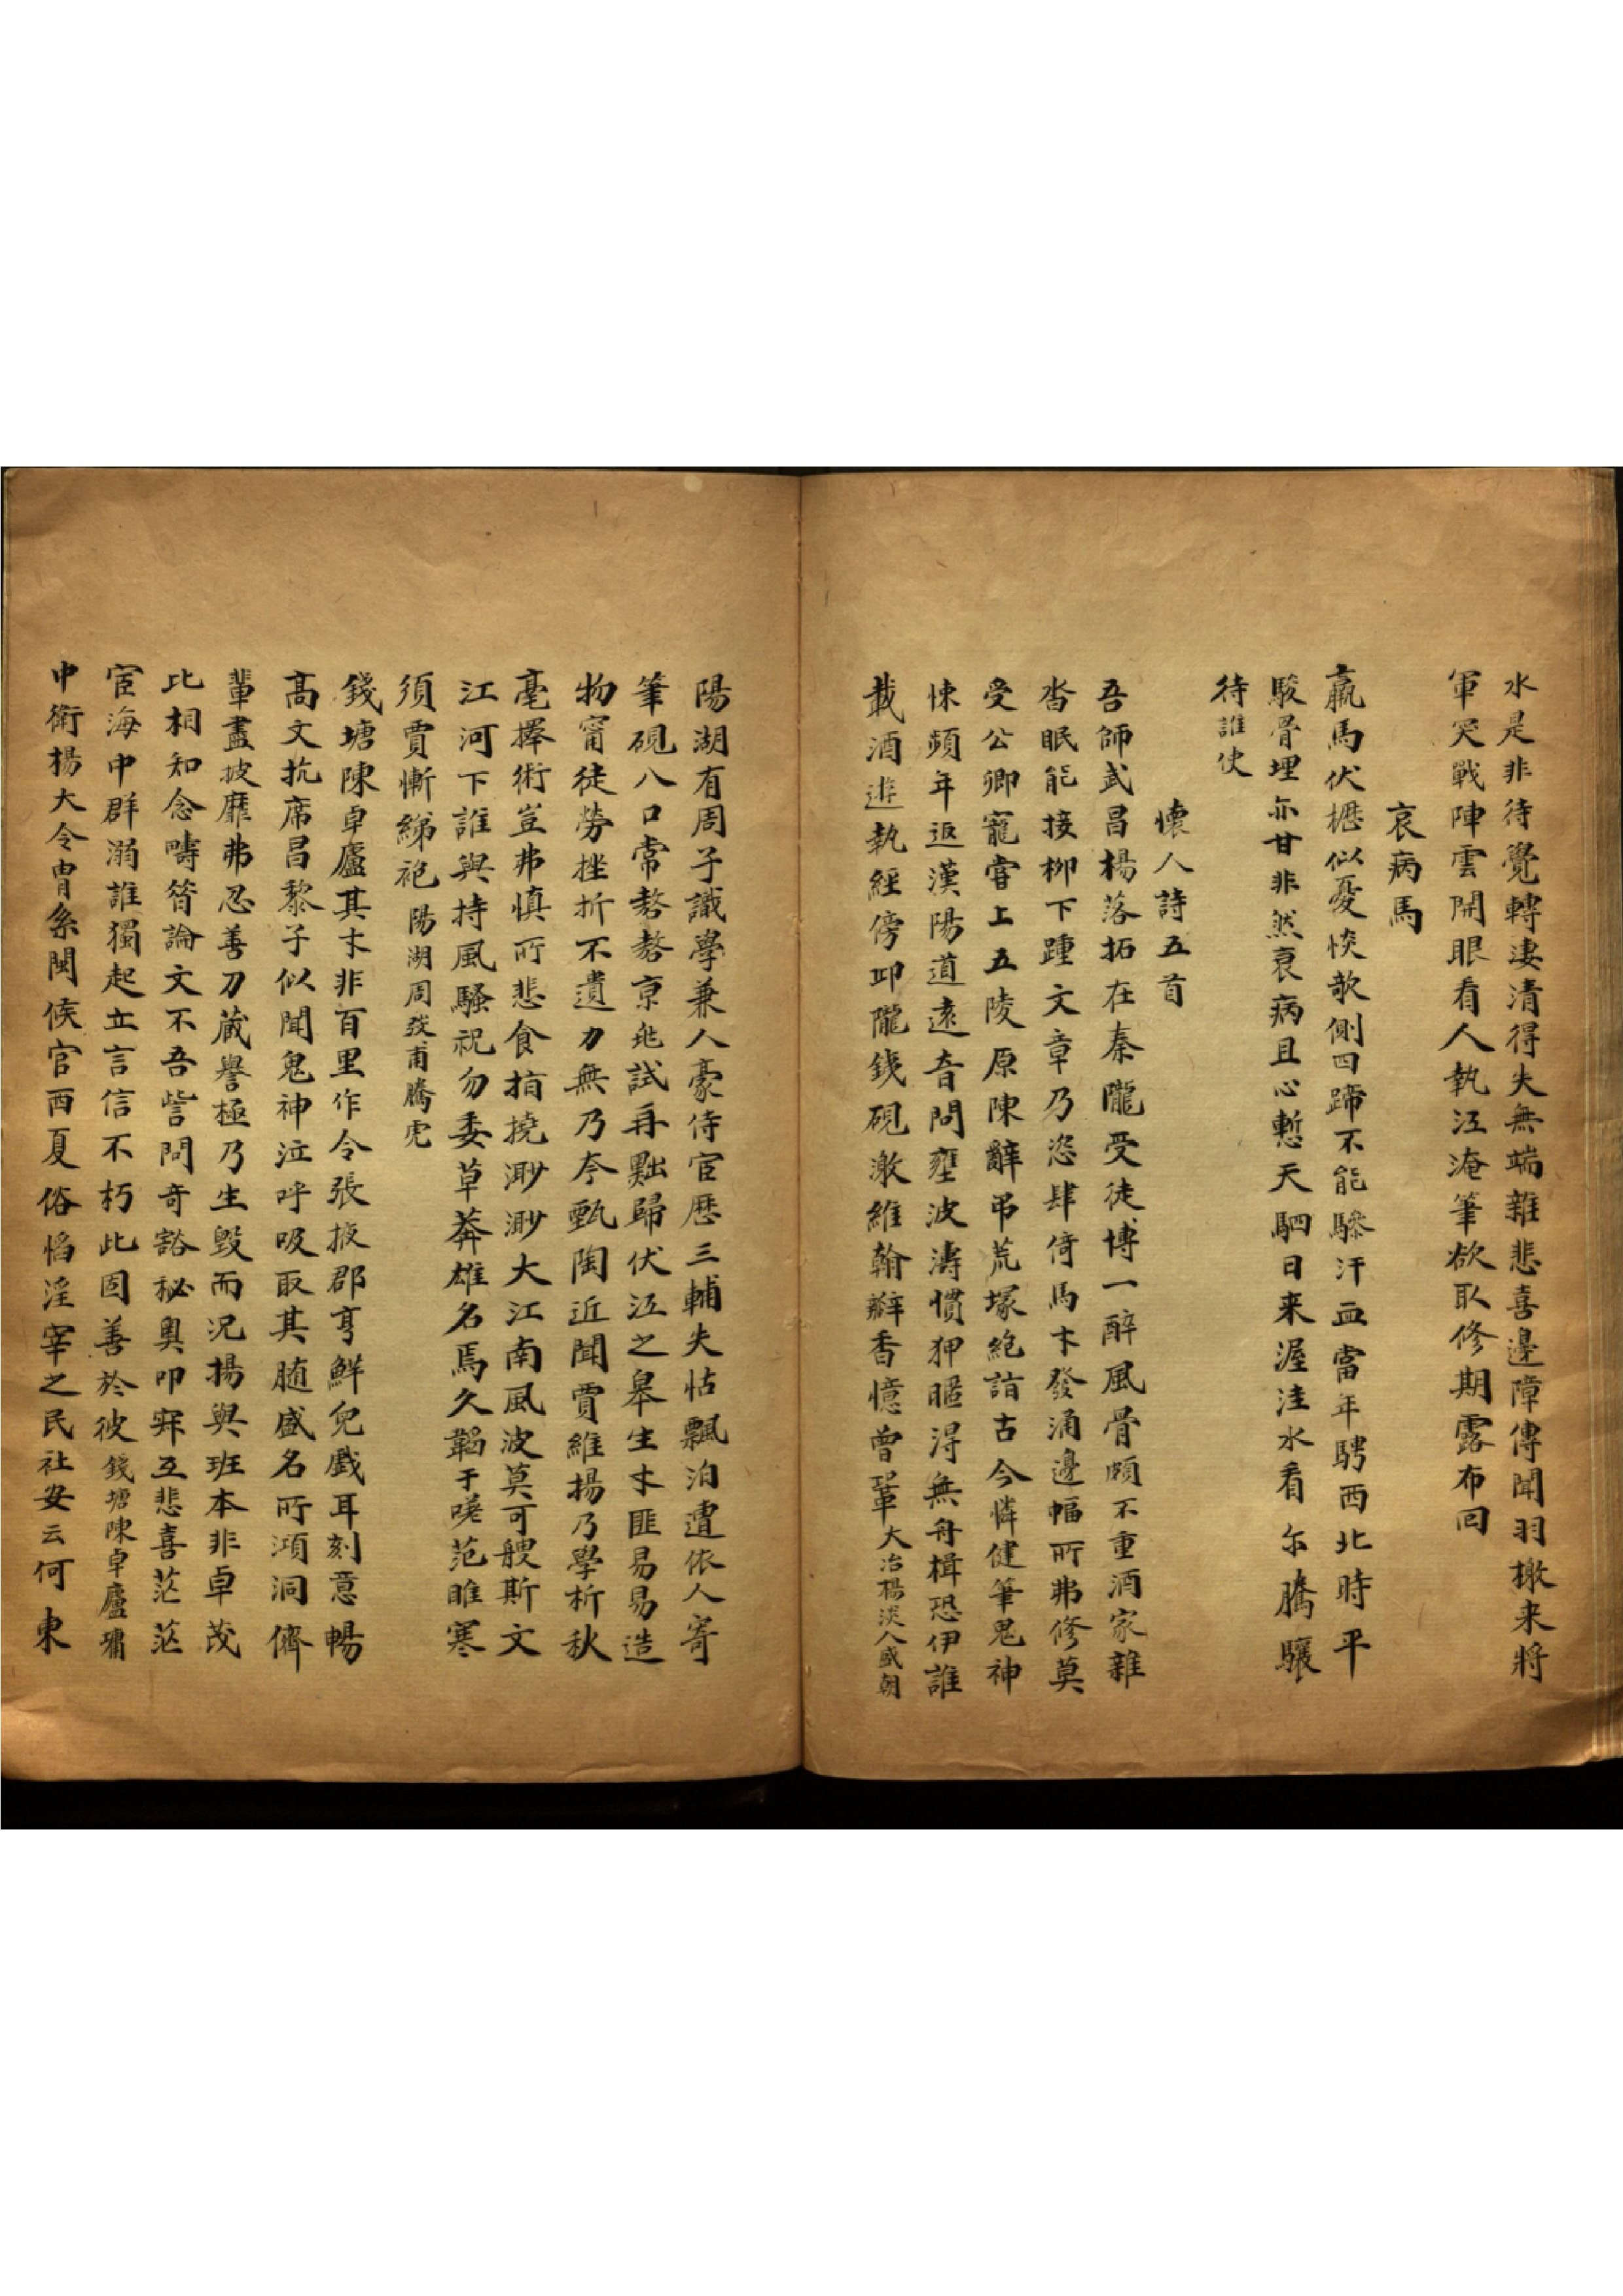 水是非待覺轉淒清得失無端雜悲喜邊障傳聞羽檄来將
軍哭戰陣雲開眼看人執江淹筆欲取修期露布回
哀病馬
羸馬伏櫪似憂惔欹側四蹄不能驂汗血當年騁西北時平
駿骨埋亦甘非然衰病且心慙天駟日来渥洼水看尓騰驤
待誰使
懷人詩五首
吾師武昌楊落拓在秦隴受徒博一醉風骨頗不重酒家雜
沓眠能接柳下踵文章乃恣肆倚馬才發涌邊幅所弗修莫
受公卿寵嘗上五陵原陳辭弔荒塚絶詣古今憐健筆鬼神
悚頻年返漢陽道遠音問壅波濤慣狎暱淂無舟楫恐伊誰
載酒遊執經傍邛隴錢硯激維翰瓣香憶曾鞏大冶楊淡人盛朝
陽湖有周子識學兼人豪侍宦歷三輔失怙飄泊遭依人寄
筆硯八口常嗸嗸京兆試再黜歸伏江之皋生才匪易易造
物甯徒勞挫折不遺力無乃夲甄陶近聞賈維揚乃學析秋
毫擇術豈弗慎所悲食指撓渺渺大江南風波莫可艘斯文
江河下誰與持風騷祝勿委草莽雄名焉久韜于嗟范睢寒
須賈慚綈袍陽湖周弢甫騰虎
錢塘陳卓廬其才非百里作令張掖郡亨鮮兒戲耳刻意暢
高文抗席昌黎子似聞鬼神泣呼吸取其髓盛名所澒洞儕
輩盡披靡弗忍善刀藏譽極乃生毀而況揚與班本非卓茂
比相知念疇昔論文不吾訾問奇豁秘奧叩寐互悲喜茫茫
宦海中群溺誰獨起立言信不朽此固善於彼錢塘陳卓廬墉
中衛揚大令冑系閩候官西夏俗慆淫宰之民社安云何東